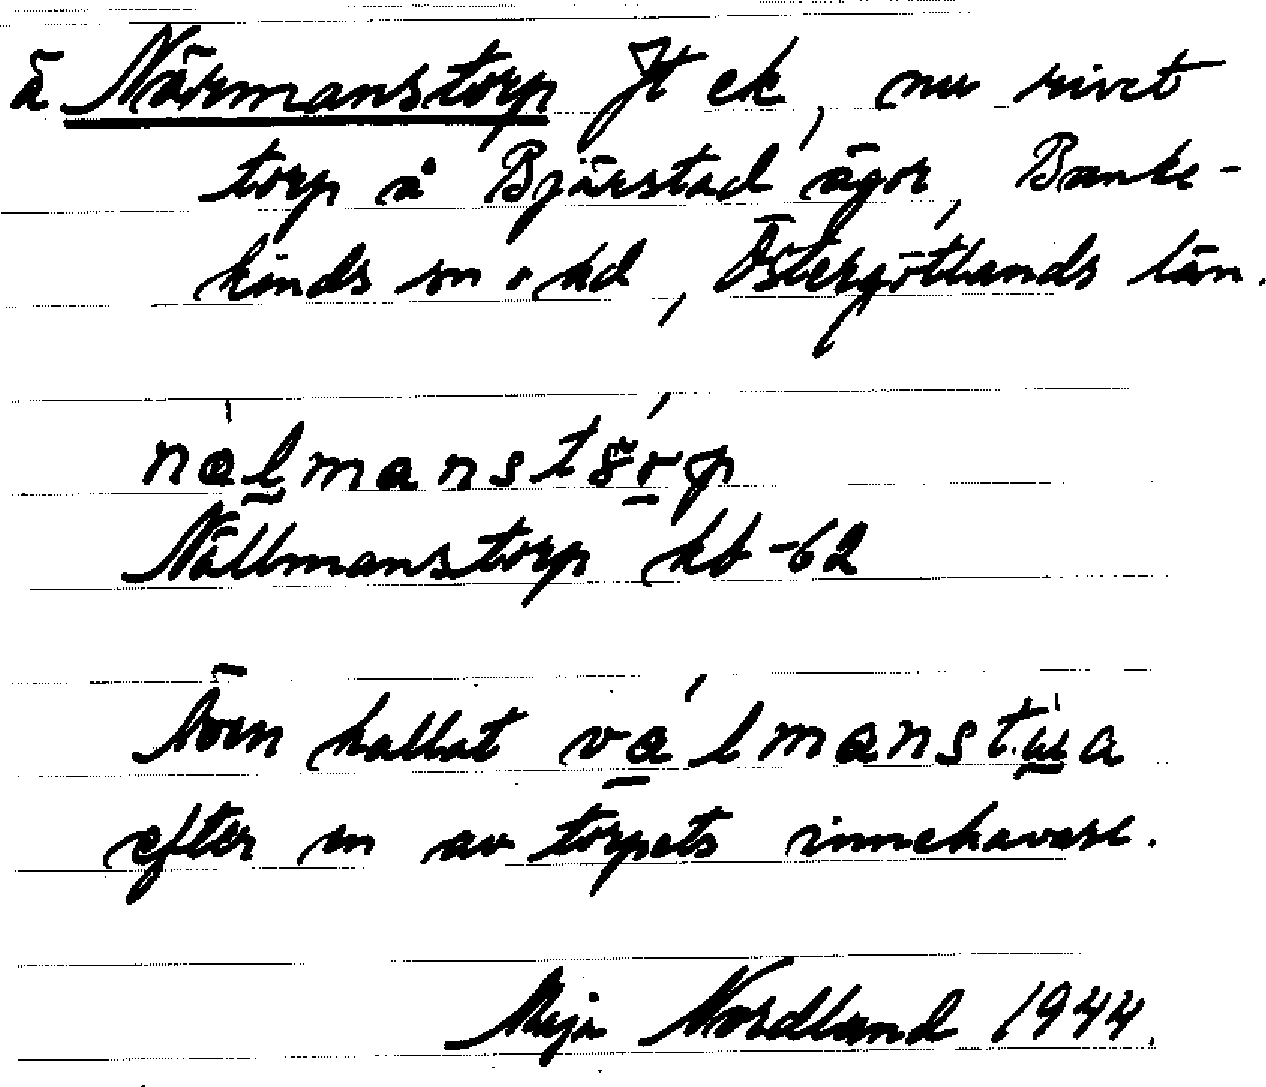 ä Närmanstorp Jt ek, nu rivet
torp å Bjärstad ägor, Banke-
kinds sn o hd, Östergötlands län.
nälmanstörp
Nällmanstorp kb -62
Även kallat välmanst a
efter en av torpets innehavare.
Maja Nordland 1944.